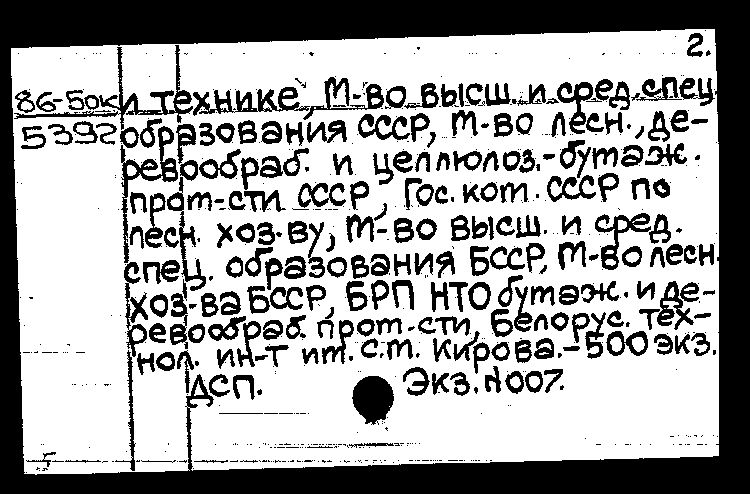 2.
86-5бок и технике, М-во высш. и сред. спец.
5392 образования СССР, М-во лесн., де-
ревообраб. и целлюлоз.-бумаж.
пром-сти СССР, Гос. ком. СССР по
лесн. хоз-ву, М-во высш. и сред.
спец. образования БССР, М-во лесн.
хоз-ва БССР, БРП НТО бумаж. и де-
ревообраб. пром-сти, Белорус. тех-
нол. ин-т им. С.М. Кирова.-500 экз.
ДСП. Экз. №007.
5